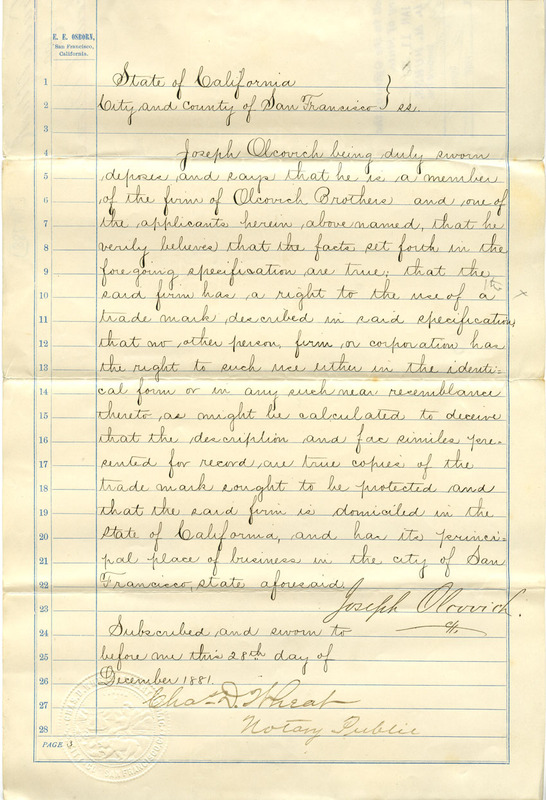 E. E. OSBORN,
San Francisco,
California.
1 State of California
2 City and County of San Francisco } ss.
3
4 Joseph Olcovich being duly sworn
5 deposes and says that he is a member
6 of the firm of Olcovich Brothers and one of
7 the applicants herein above named, that he
8 verily believes that the facts set forth in the
9 foregoing specification are true; that the
10 said firm has a right to the use of a the x
11 trade mark, described in said specification,
12 that no other person, firm, or corporation has
13 the right to such use either in the identi-
14 cal form or in any such near resemblance
15 thereto, as might be calculated to deceive
16 that the description and fac similes pre-
17 sented for record, are true copies of the
18 trade mark sought to be protected and
19 that the said firm is domiciled in the
20 State of California, and has its princi-
21 pal place of business in the city of San
22 Francisco, state aforesaid
23 Joseph Olcovich.
24 Subscribed and sworn to
25 before me this 28th day of
26 December 1881.
27 Chas. D. Wheat
28 Notary Public
PAGE 3